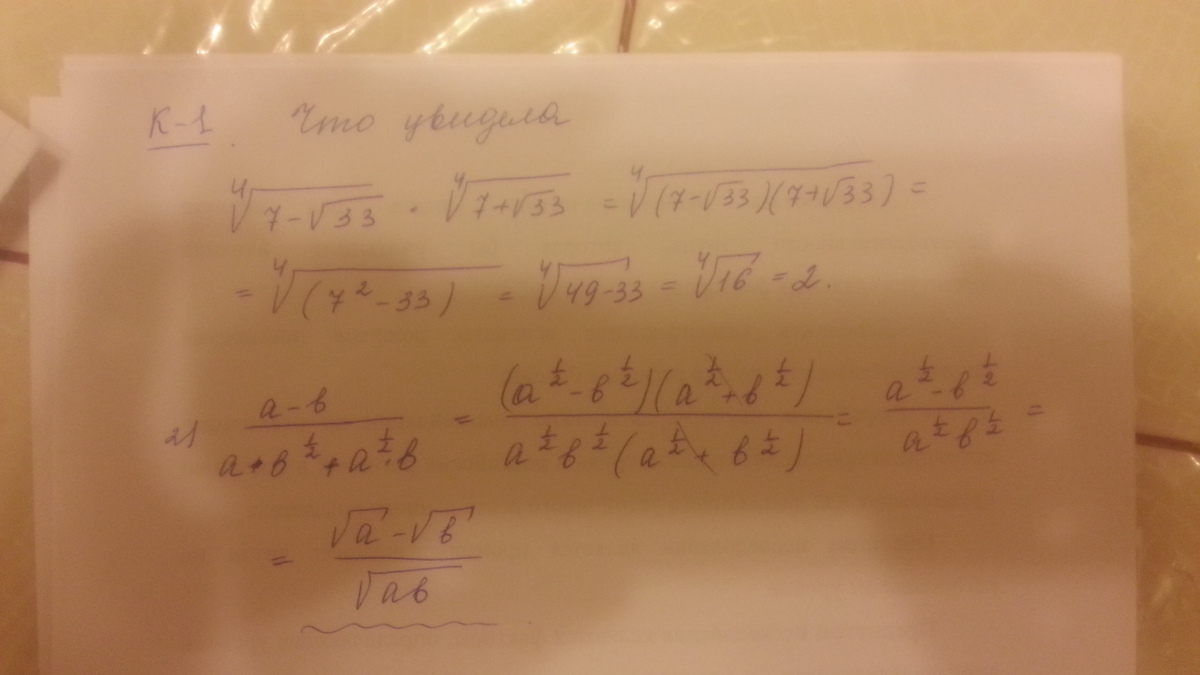 К-1. Что увидела
⁴√(7-√33) · ⁴√(7+√33) = ⁴√((7-√33)(7+√33)) =
= ⁴√((7²-33)) = ⁴√(49-33) = ⁴√16 = 2.
2) (a-b)/(a·b^(1/2)+a^(1/2)·b) = ((a^(1/2)-b^(1/2))(a^(1/2)+b^(1/2)))/(a^(1/2)b^(1/2)(a^(1/2)+b^(1/2))) = (a^(1/2)-b^(1/2))/(a^(1/2)b^(1/2)) =
= (√a-√b)/√(ab)